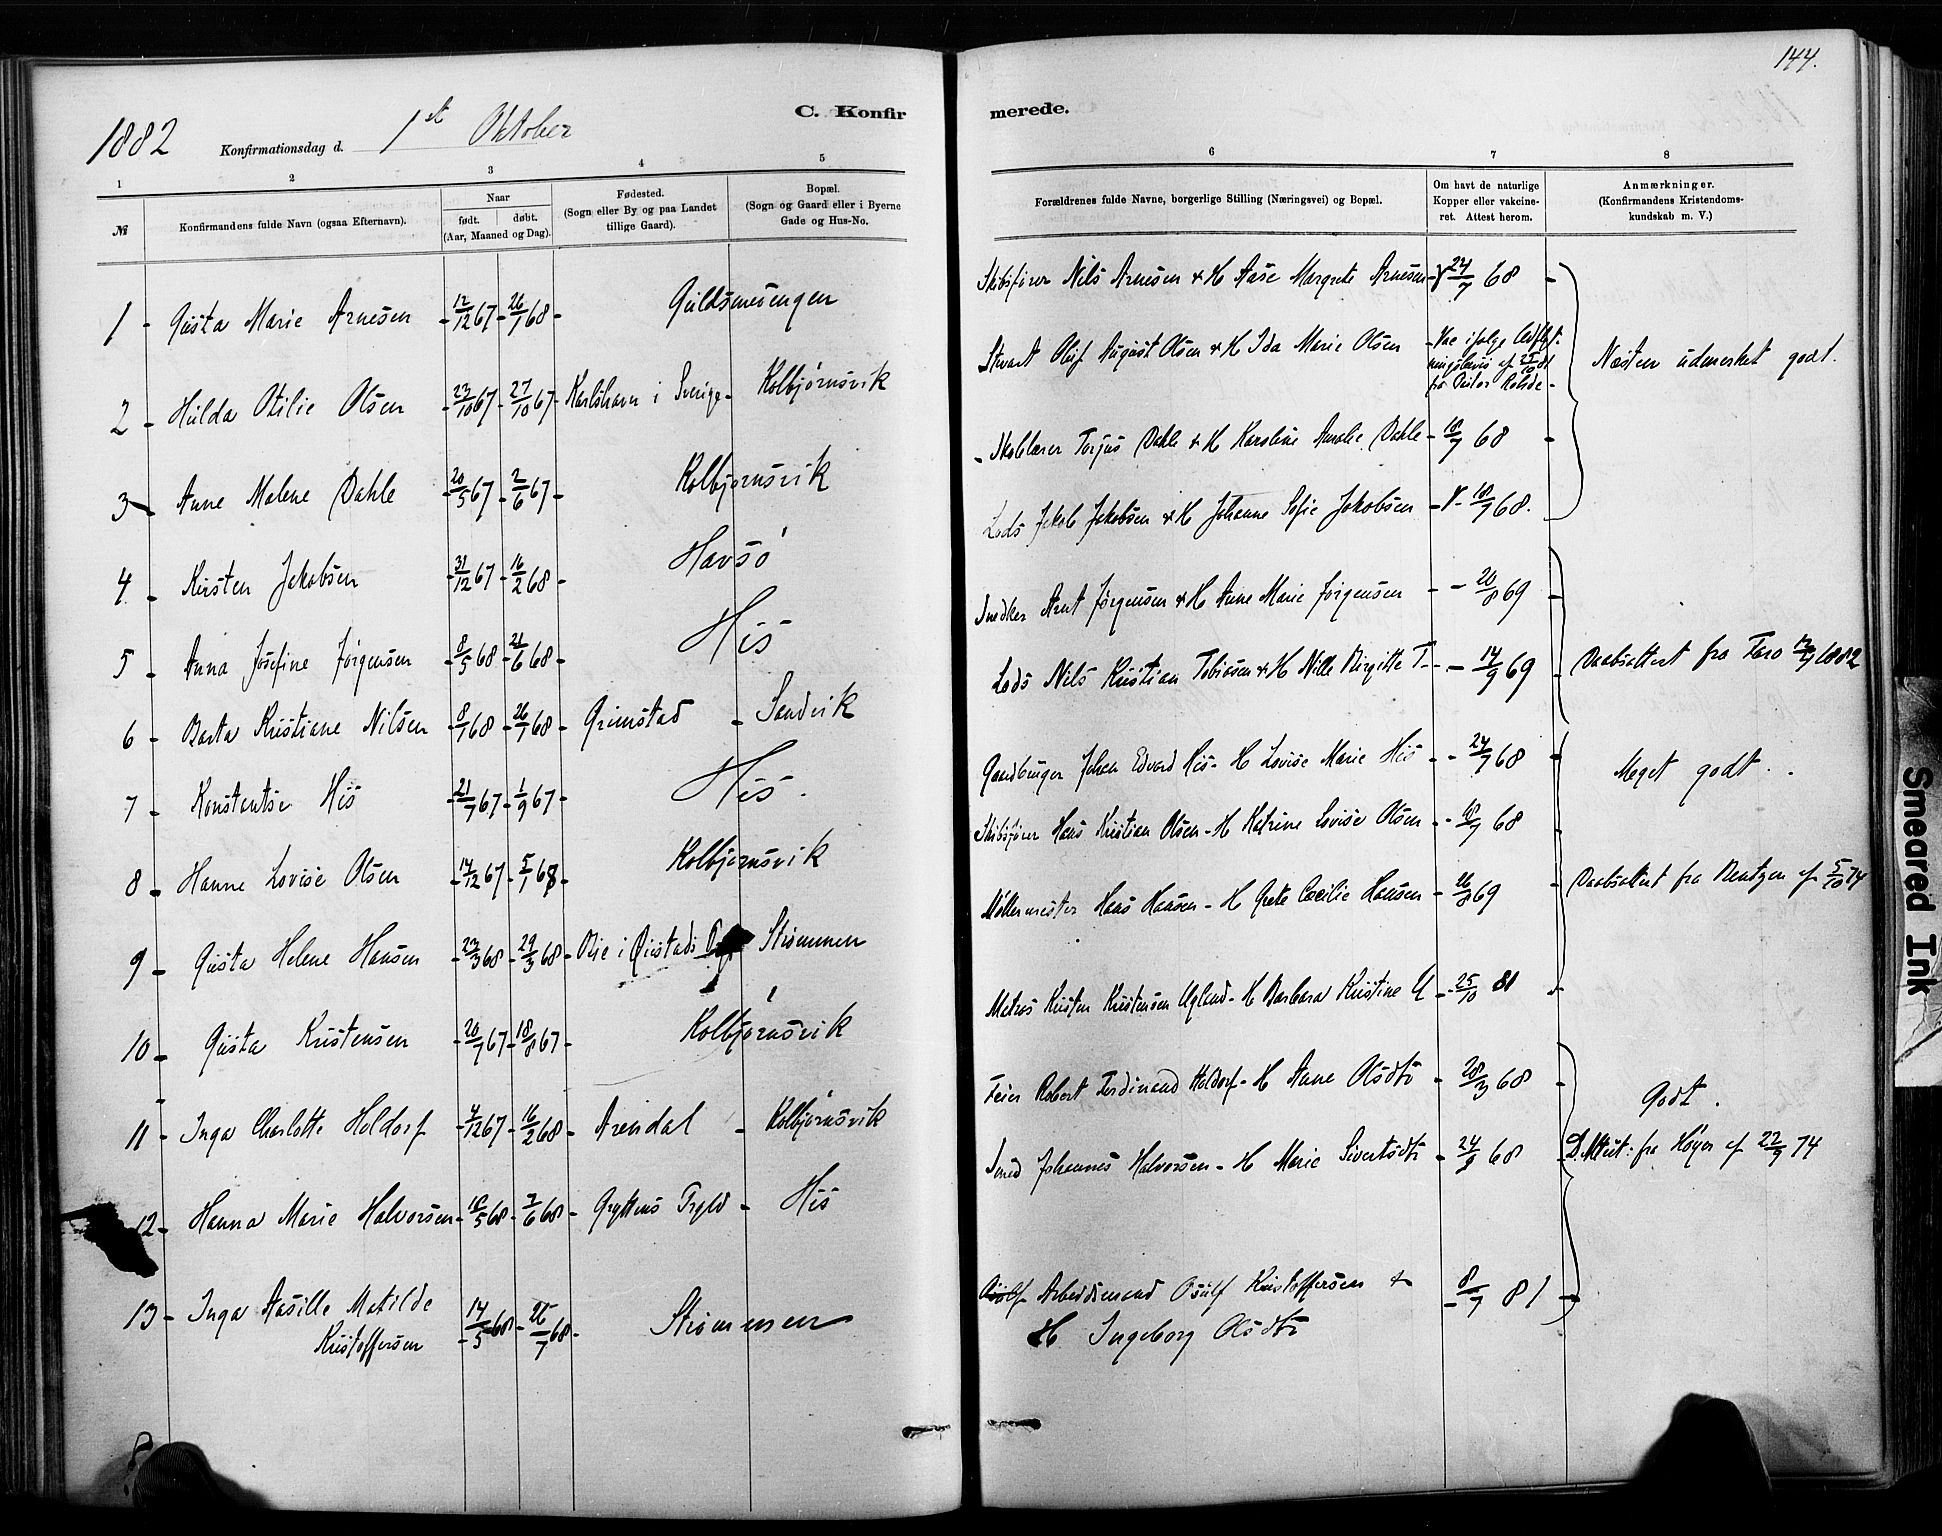 144.
1882 Konfirmationsdag d. 1st Oktober
C. Konfirmerede.
1 2 3 4 5 6 7 8
№ Konfirmandens fulde Navn (ogsaa Efternavn).
Naar
født. døbt.
(Aar, Maaned og Dag).
Fødested.
(Sogn eller By og paa Landet
tillige Gaard).
Bopæl.
(Sogn og Gaard eller i Byerne
Gade og Hus-No.
Forældrenes fulde Navne, borgerlige Stilling (Næringsvei) og Bopæl.
Om havt de naturlige
Kopper eller vakcine-
ret. Attest herom.
Anmærkninger.
(Konfirmandens Kristendoms-
kundskab m. V.)
1 - Gusta Marie Arnesen - 12/12 67 - 26/1 68 - Guldsmedengen Skibsfører Nils Arnesen & H Aase Margrete Arnesen - 24/7 68 -
2 - Hulda Otilie Olsen - 23/10 67 - 27/10 67 - Karlshavn i Sverige - Kolbjørnsvik Stuart Oluf August Olsen & H Ida Marie Olsen - Vac ifølge
Næsten udmerket godt.
3 - Anne Malene Dahle - 20/5 67 - 2/6 67 - Kolbjørnsvik - Skolelærer Torjus Dahle & H Karoline Amalie Dahle - 18/7 68 -
4 - Kirsten Jakobsen - 31/12 67 - 16/2 68 - Havsø Lods Jakob Jakobsen & H Johanne Sofie Jakobsen - 18/7 68.
5 - Anna Josefine Jørgensen - 8/5 68 - 21/6 68 - His Snedker Arnt Jørgensen & H Anne Marie Jørgensen - 20/8 69
6 - Berta Kristiane Nilsen - 8/1 68 - 26/1 68 - Grimstad - Sandvik Lods Nils Kristian Tobiasen & H Nille Birgitte T - 14/9 69 Daabsattest fra 1882
7 - Konstantse His - 21/7 67 - 1/9 67 - His. Gaardbruger Johan Edvard His - H Lovise Marie His - 24/7 68 Meget godt.
8 - Hanne Lovise Olsen - 14/12 67 - 5/1 68 - Kolbjørnsvik Skibsfører Hans Kristian Olsen - H Katrine Lovise Olsen - 18/7 68
9 - Gusta Helene Hansen - 23/3 68 - 29/3 68 - i Øiestads - Strømmen Møllermester Hans Hansen - H Grete Cæcilie Hansen - 26/8 69 Daabsattest fra Bentzen af 5/10 74
10 - Gusta Kristensen - 20/7 67 - 18/8 67 - Kolbjørnsvik Matros Kristen Kristensen Ugland - H Barbara Kristine U - 25/10 81
11 - Inga Charlotte Holdorf - 4/12 67 - 16/2 68 - Arendal - Kolbjørnsvik Feier Robert Ferdinand Holdorf - H Anne Olsdtr - 28/3 68 - Godt.
12 - Hanna Marie Halvorsen - 18/5 68 - 7/6 68 - - His Johannes Halvorsen - H Marie Sivertsdtr - 24/9 68 D. Attest: fra Høyer af 22/9 74
13 - Inga Aasille Matilde
Kristoffersen - 14/5 68 - 26/7 68 - Strømmen Arbeidsmand Osulf Kristoffersen &
H Ingeborg Olsdtr - 8/7 81
Smeared Ink